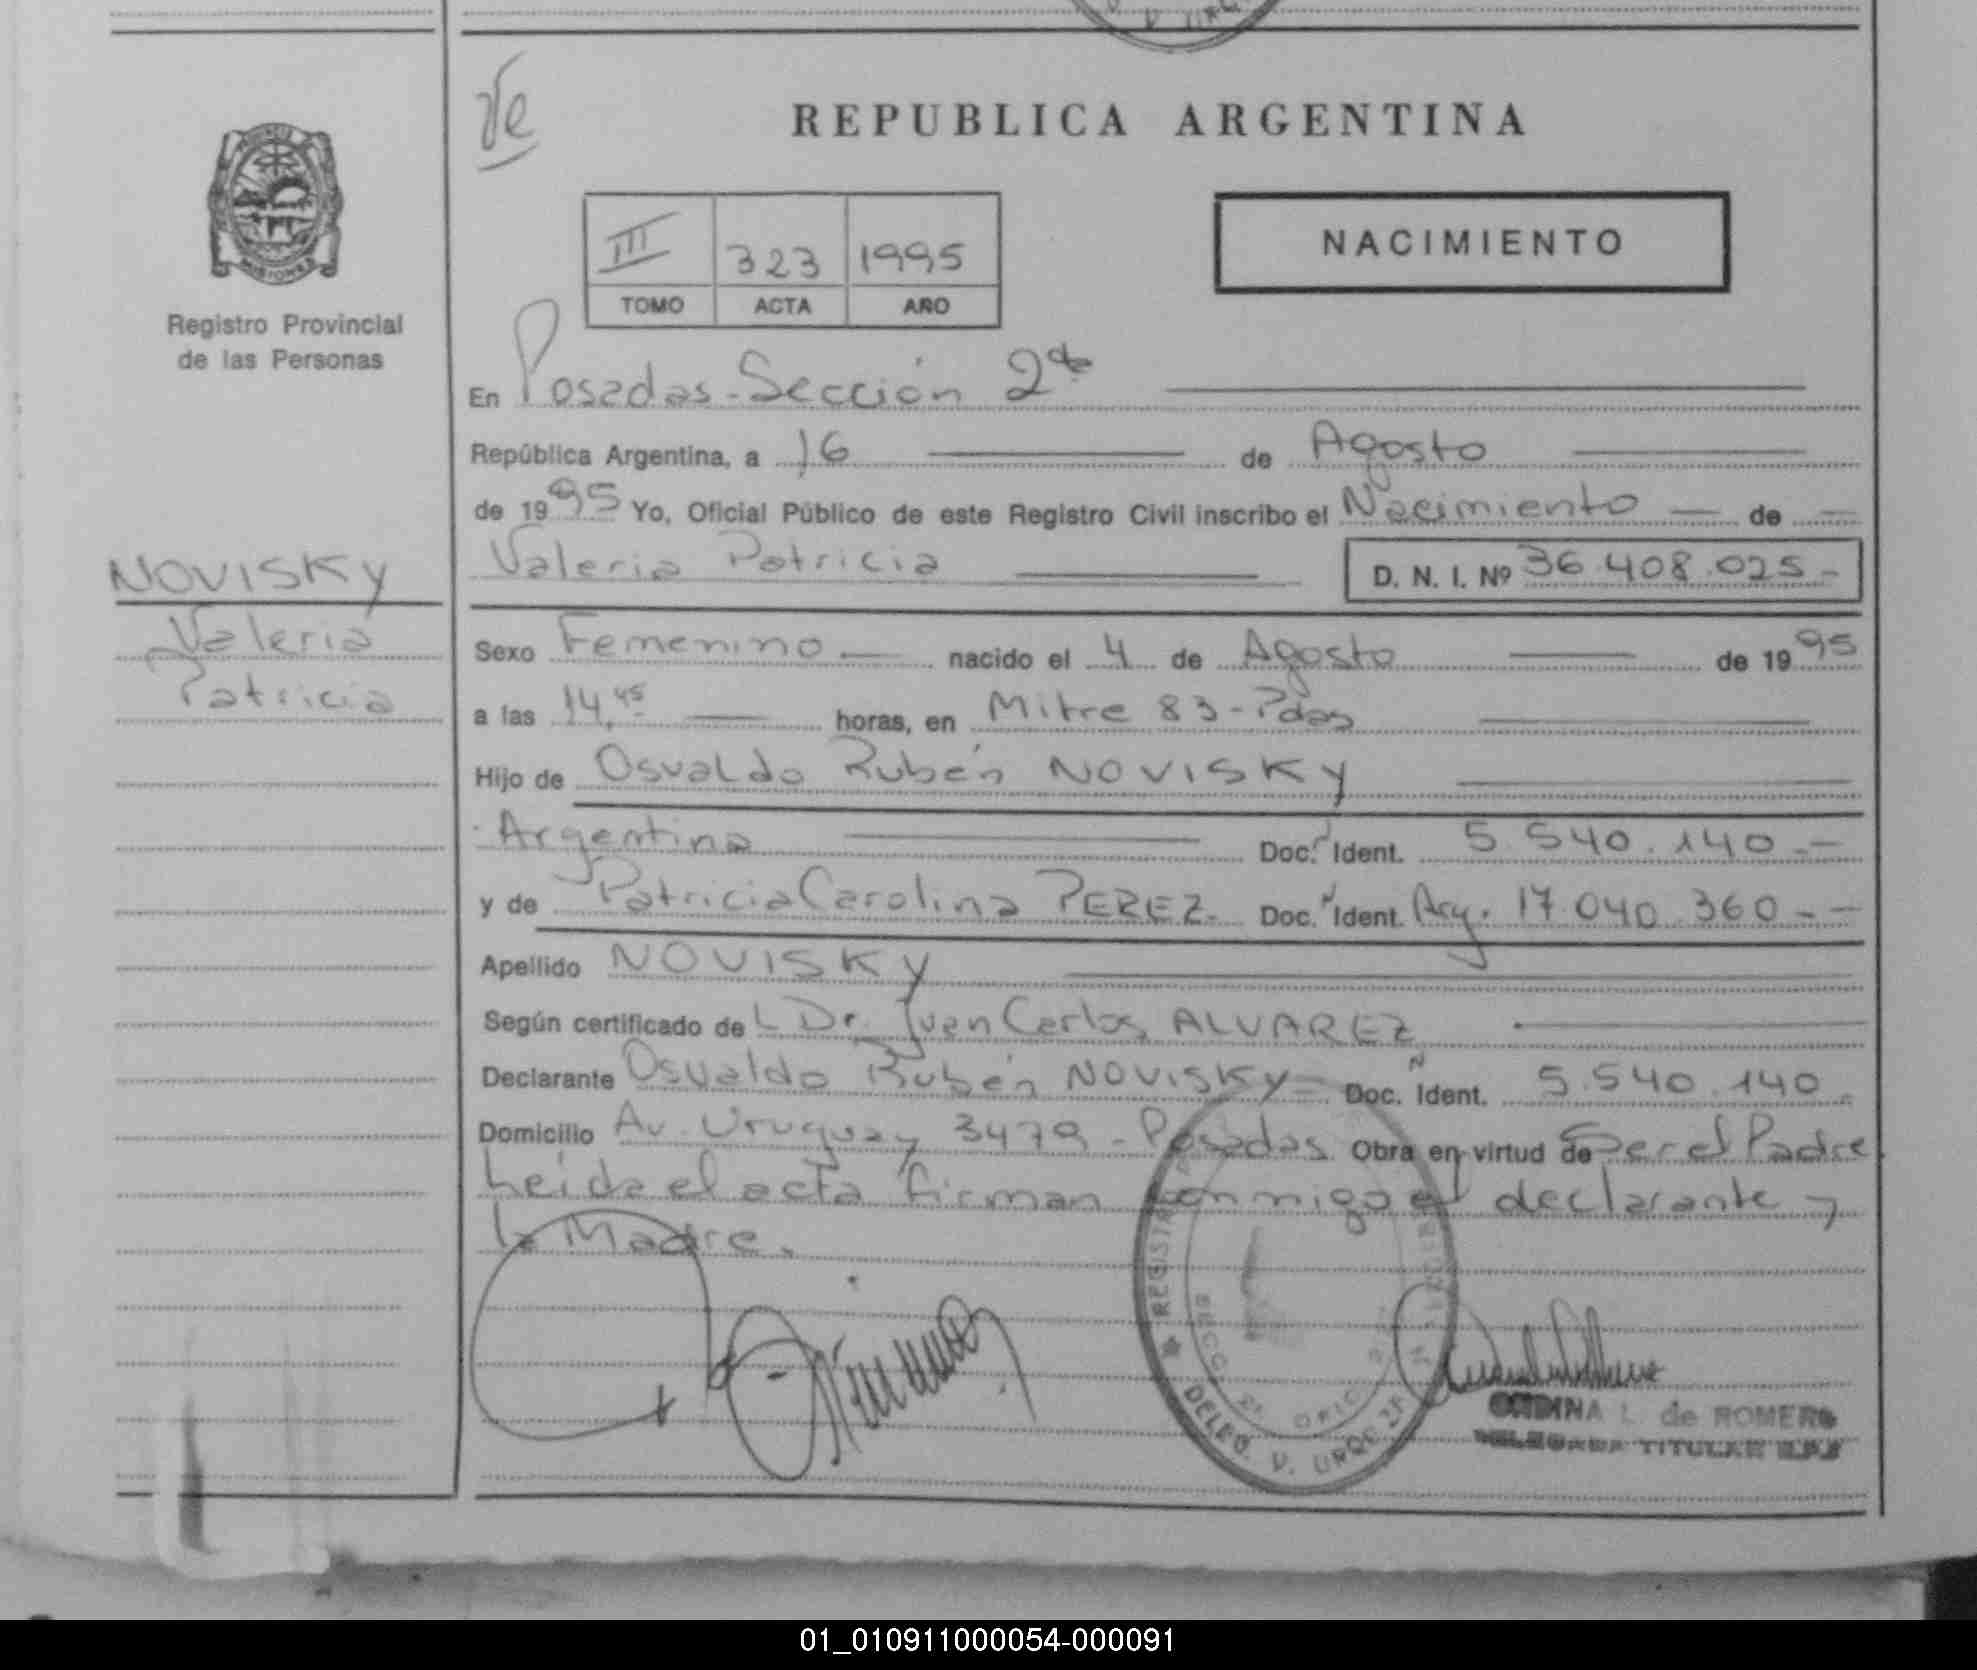 Ve
REPUBLICA ARGENTINA
PROVINCIA
MISIONES
III 323 1995
TOMO ACTA AÑO
NACIMIENTO
Registro Provincial
de las Personas
En Posadas - Sección 2da
República Argentina, a 16 de Agosto
de 1995 Yo, Oficial Público de este Registro Civil inscribo el Nacimiento de
Valeria Patricia D. N. I. Nº 36.408.025 -
NOVISKY
Valeria
Patricia
Sexo Femenino nacido el 4 de Agosto de 1995
a las 14,45 horas, en Mitre 83 - Pdas
Hijo de Osvaldo Rubén NOVISKY
Argentina Doc. Ident. 5.540.140.-
y de Patricia Carolina PEREZ. Doc. Ident. Arg. 17.040.360 - -
Apellido NOVISKY
Según certificado del Dr. Juan Carlos ALVAREZ
Declarante Osvaldo Rubén NOVISKY Doc. Ident. 5.540.140.
Domicilio Av. Uruguay 3479 - Posadas Obra en virtud de Ser el Padre
Leida el acta firman conmigo el declarante y
la Madre.
DELEG. V. URQUIZA
L. de ROMERO
TITULAR
01_010911000054-000091